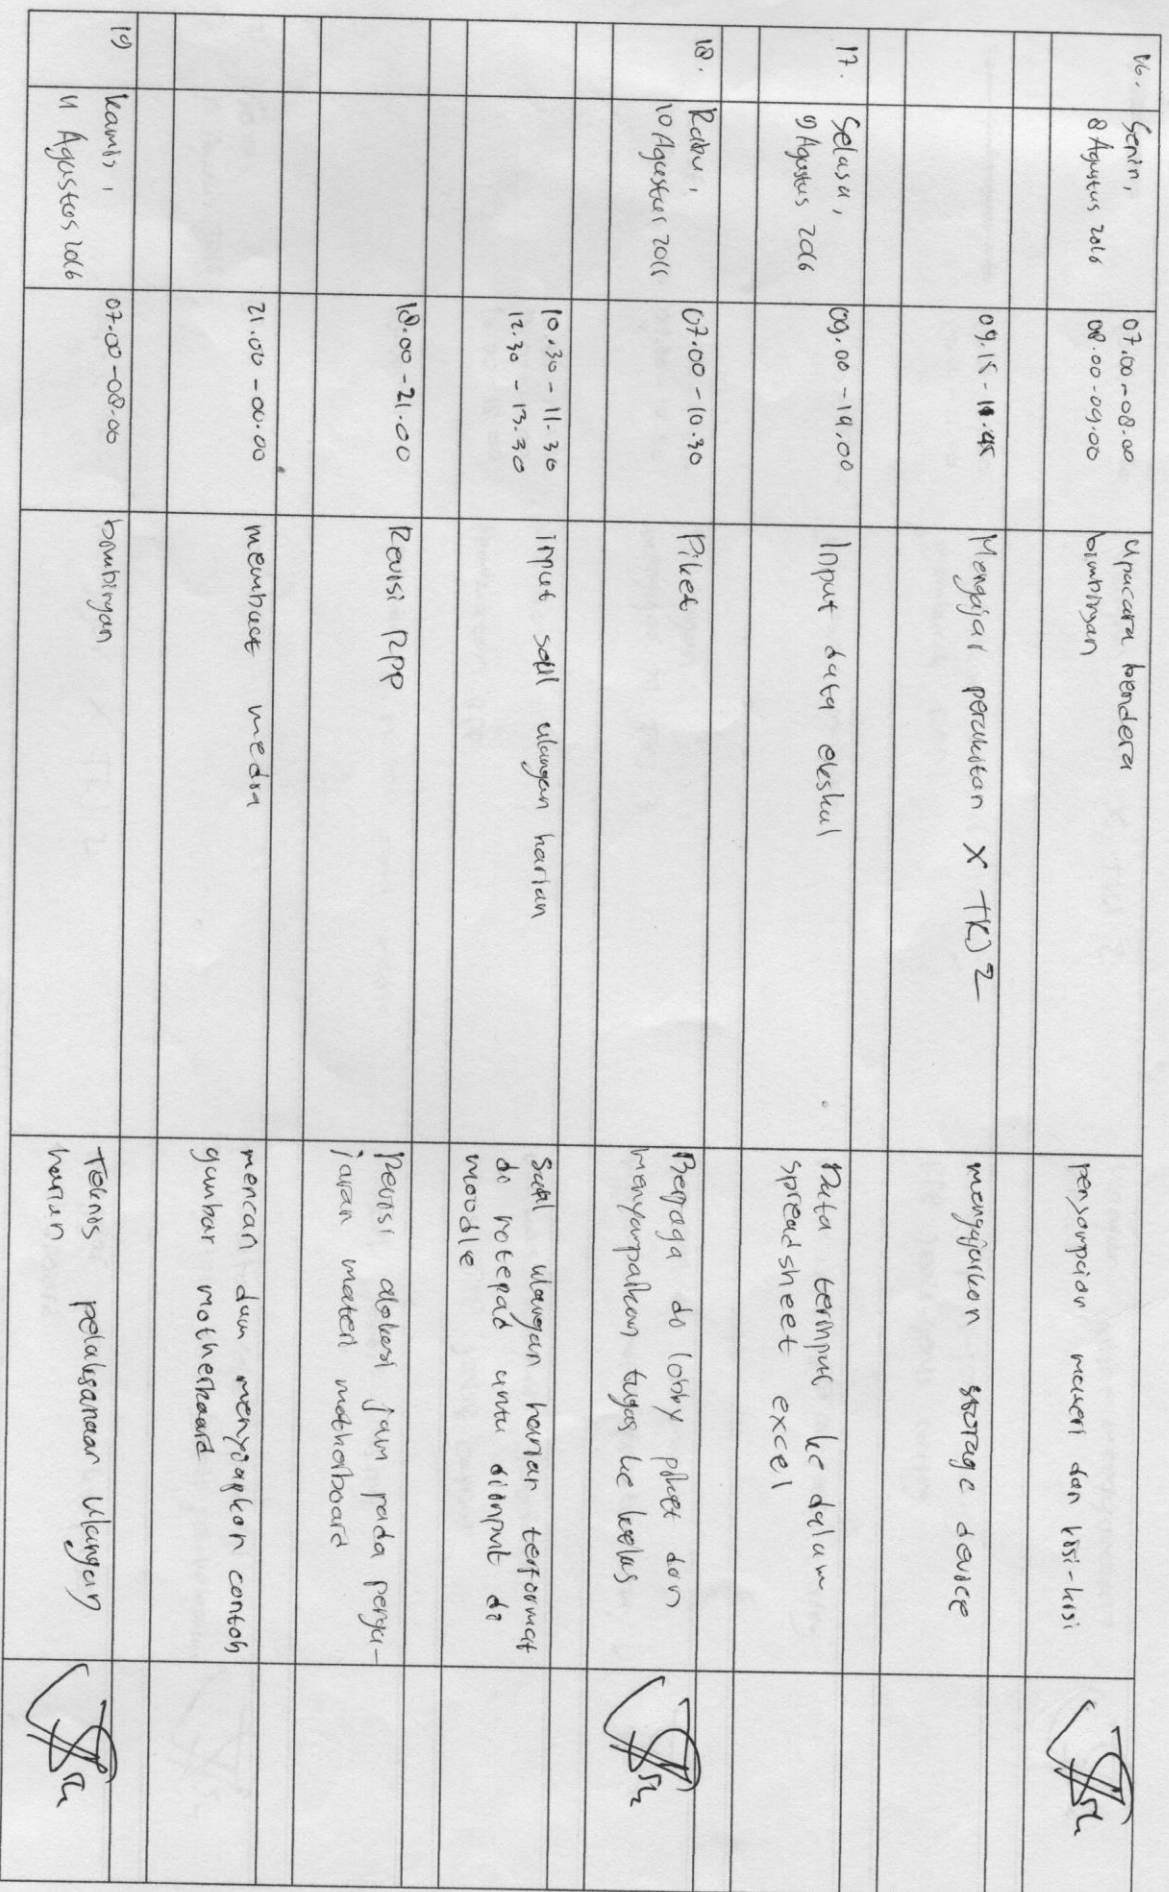 16.
Senin,
8 Agustus 2016
07.00-08.00
08.00-09.00
Upacara bendera
bimbingan
penyampaian materi dan kisi-kisi
09.15-
Mengajar perakitan X TKJ 2
mengajarkan storage device
17.
Selasa,
9 Agustus 2016
09.00-14.00
Input data ekskul
Data terinput ke dalam
spreadsheet excel
18.
Rabu,
10 Agustus 2016
07.00-10.30
Piket
Berjaga di lobby piket dan
menyampaikan tugas ke kelas
10.30 - 11.30
12.30 - 13.30
input soal ulangan harian
Soal ulangan harian terformat
di notepad untu diinput di
moodle
18.00-21.00
Revisi RPP
Revisi alokasi jam pada penga-
jaran materi motherboard
21.00-00.00
membuat media
mencari dan menyiapkan contoh
gambar motherboard
19
Kamis,
11 Agustus 2016
07.00-08.00
bimbingan
Teknis pelaksanaan Ulangan
harian